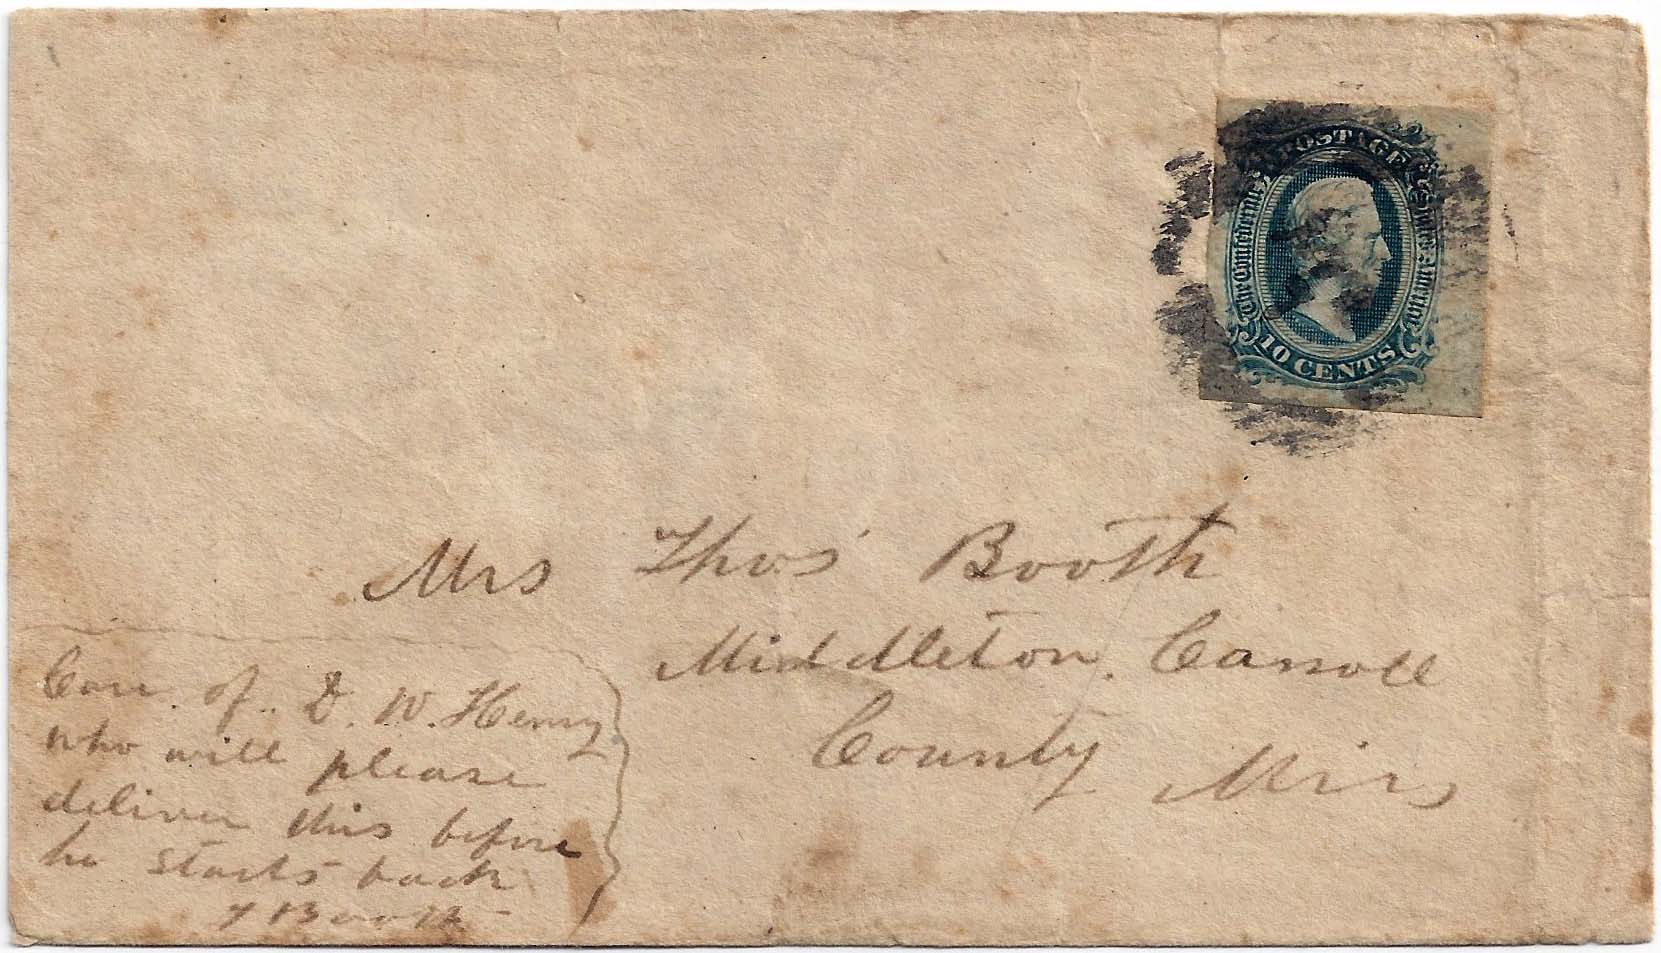 POSTAGE
The Confederate States of America
10 CENTS
Mrs Thos' Booth
Middleton. Carroll
County Miss
Care of. D. W. Henry
who will please
deliver this before
he starts back
T Booth-